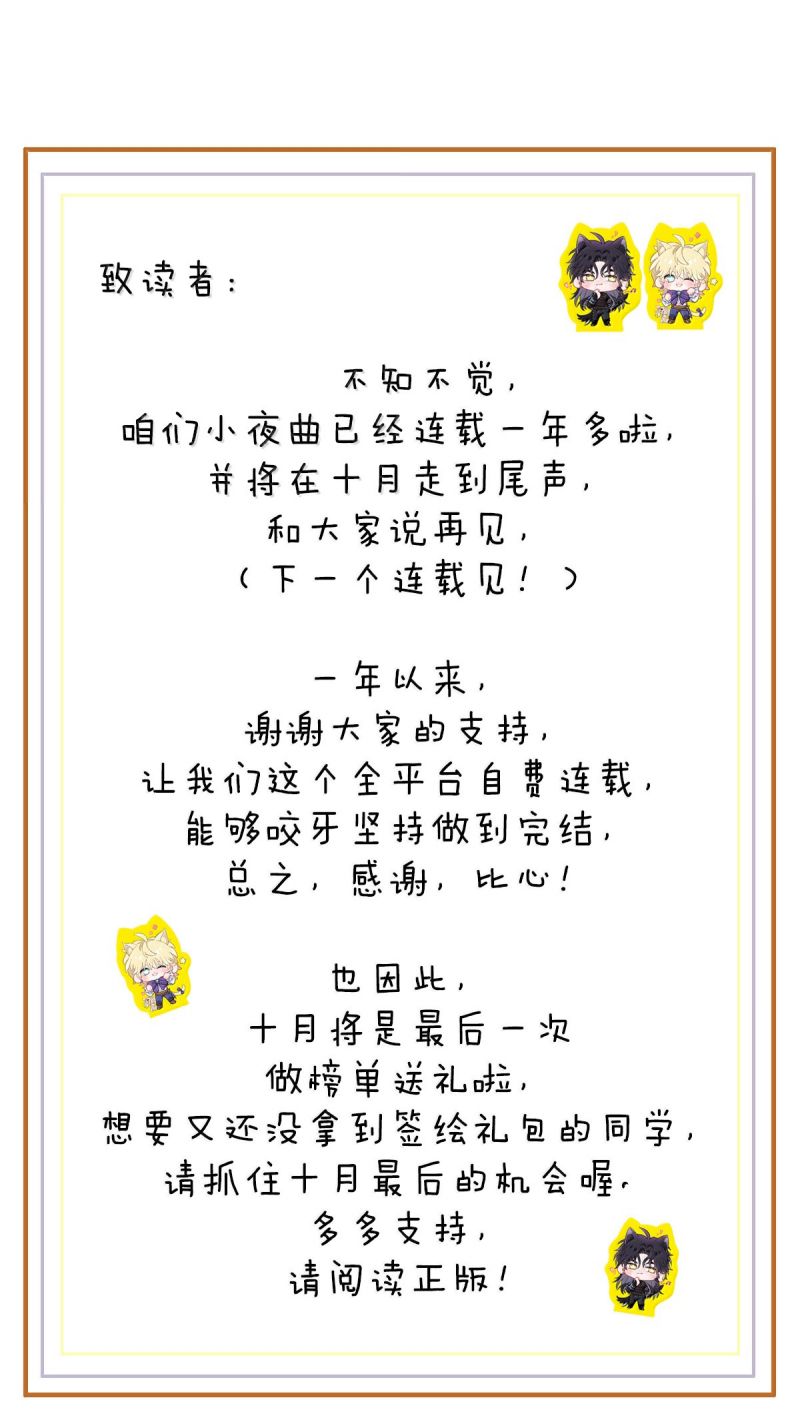 致读者：
不知不觉，
咱们小夜曲已经连载一年多啦，
并将在十月走到尾声，
和大家说再见，
（下一个连载见！）
一年以来，
谢谢大家的支持，
让我们这个全平台自费连载，
能够咬牙坚持做到完结，
总之，感谢，比心！
也因此，
十月将是最后一次
做榜单送礼啦，
想要又还没拿到签绘礼包的同学，
请抓住十月最后的机会喔．
多多支持，
请阅读正版！